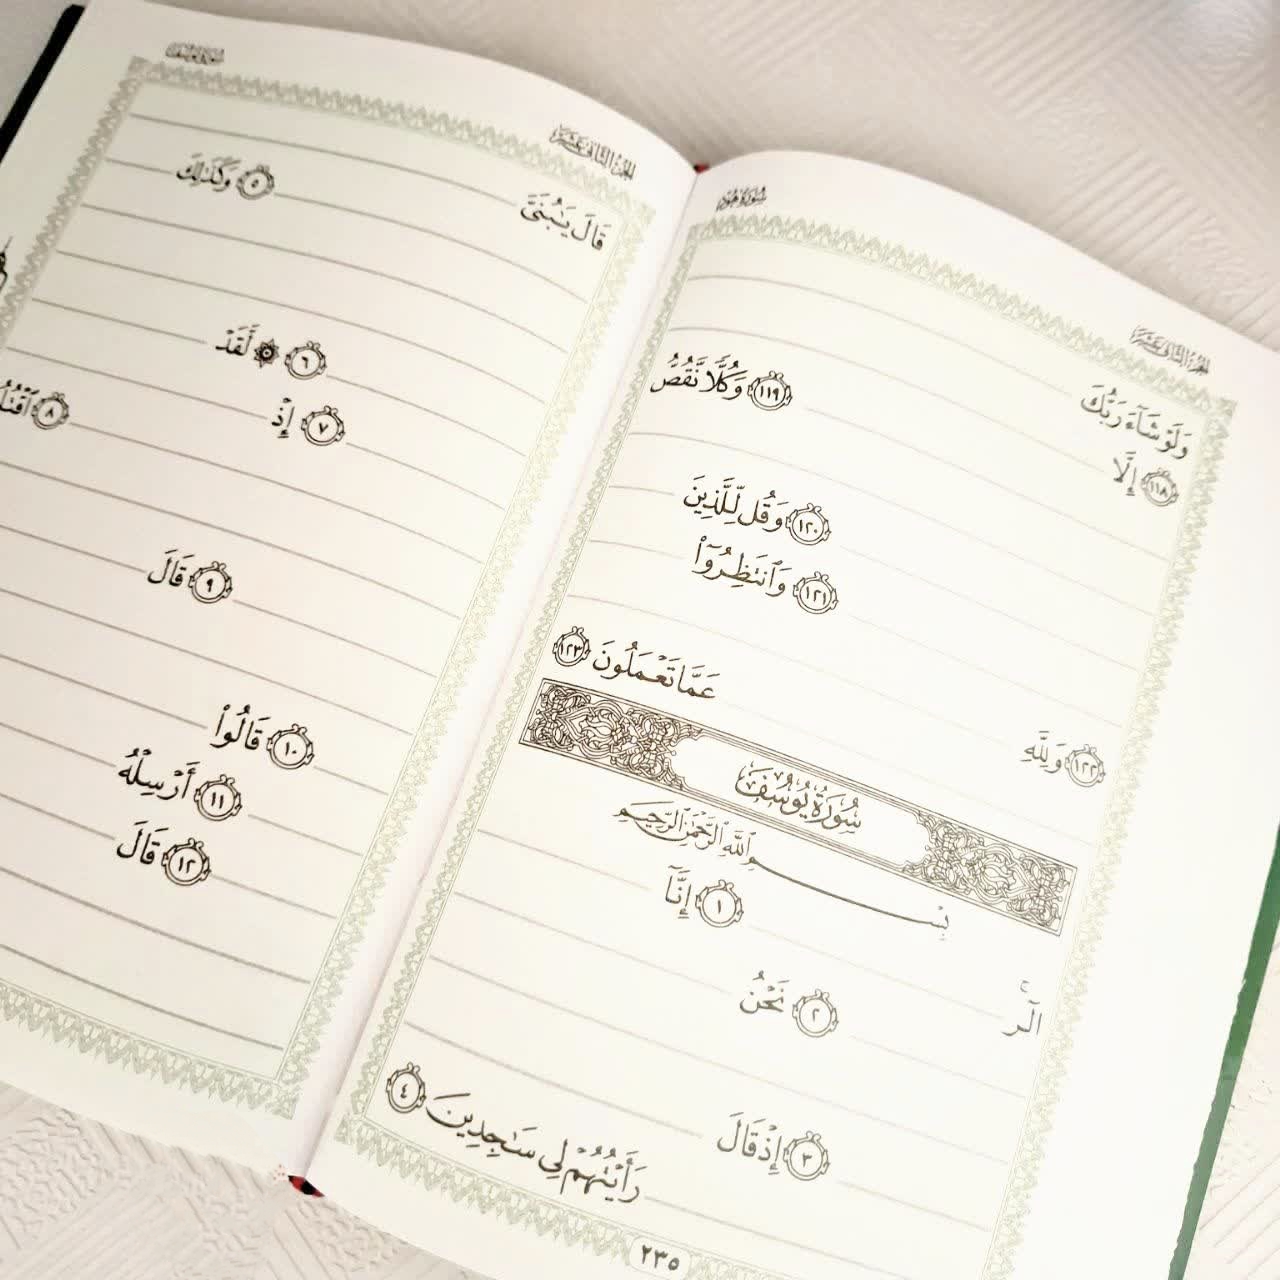 سُورَةُ هُودٍ
الجزء الثاني عشر
وَلَوْ شَآءَ رَبُّكَ
﴿١١٨﴾ إِلَّا
﴿١١٩﴾ وَكُلًّا نَّقُصُّ
﴿١٢٠﴾ وَقُل لِّلَّذِينَ
﴿١٢١﴾ وَٱنتَظِرُوٓا۟
﴿١٢٢﴾ وَلِلَّهِ
عَمَّا تَعْمَلُونَ ﴿١٢٣﴾
سُورَةُ يُوسُفَ
بِسْمِ ٱللَّهِ ٱلرَّحْمَٰنِ ٱلرَّحِيمِ
الٓر
﴿١﴾ إِنَّآ
﴿٢﴾ نَحْنُ
﴿٣﴾ إِذْ قَالَ
رَأَيْتُهُمْ لِى سَٰجِدِينَ ﴿٤﴾
٢٣٥
الجزء الثاني عشر
قَالَ يَٰبُنَىَّ
﴿٥﴾ وَكَذَٰلِكَ
﴿٦﴾ ۞ لَّقَدْ
﴿٧﴾ إِذْ
﴿٨﴾
﴿٩﴾ قَالَ
﴿١٠﴾ قَالُوا۟
﴿١١﴾ أَرْسِلْهُ
﴿١٢﴾ قَالَ